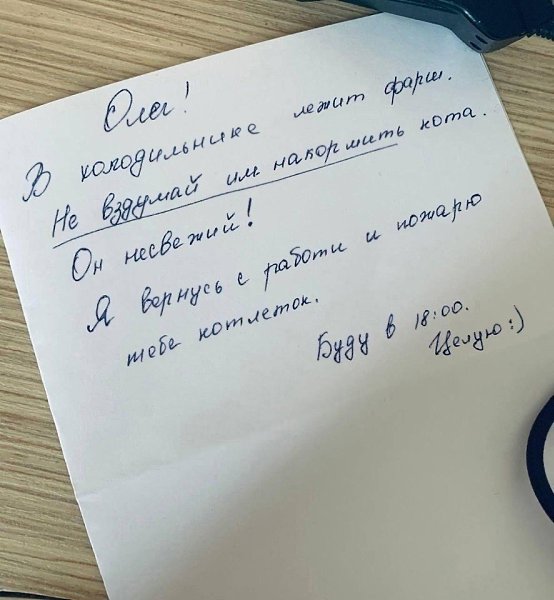 Олег!
В холодильнике лежит фарш.
Не вздумай им накормить кота.
Он несвежий!
Я вернусь с работи и пожарю
тебе котлеток.
Буду в 18:00.
Целую :)